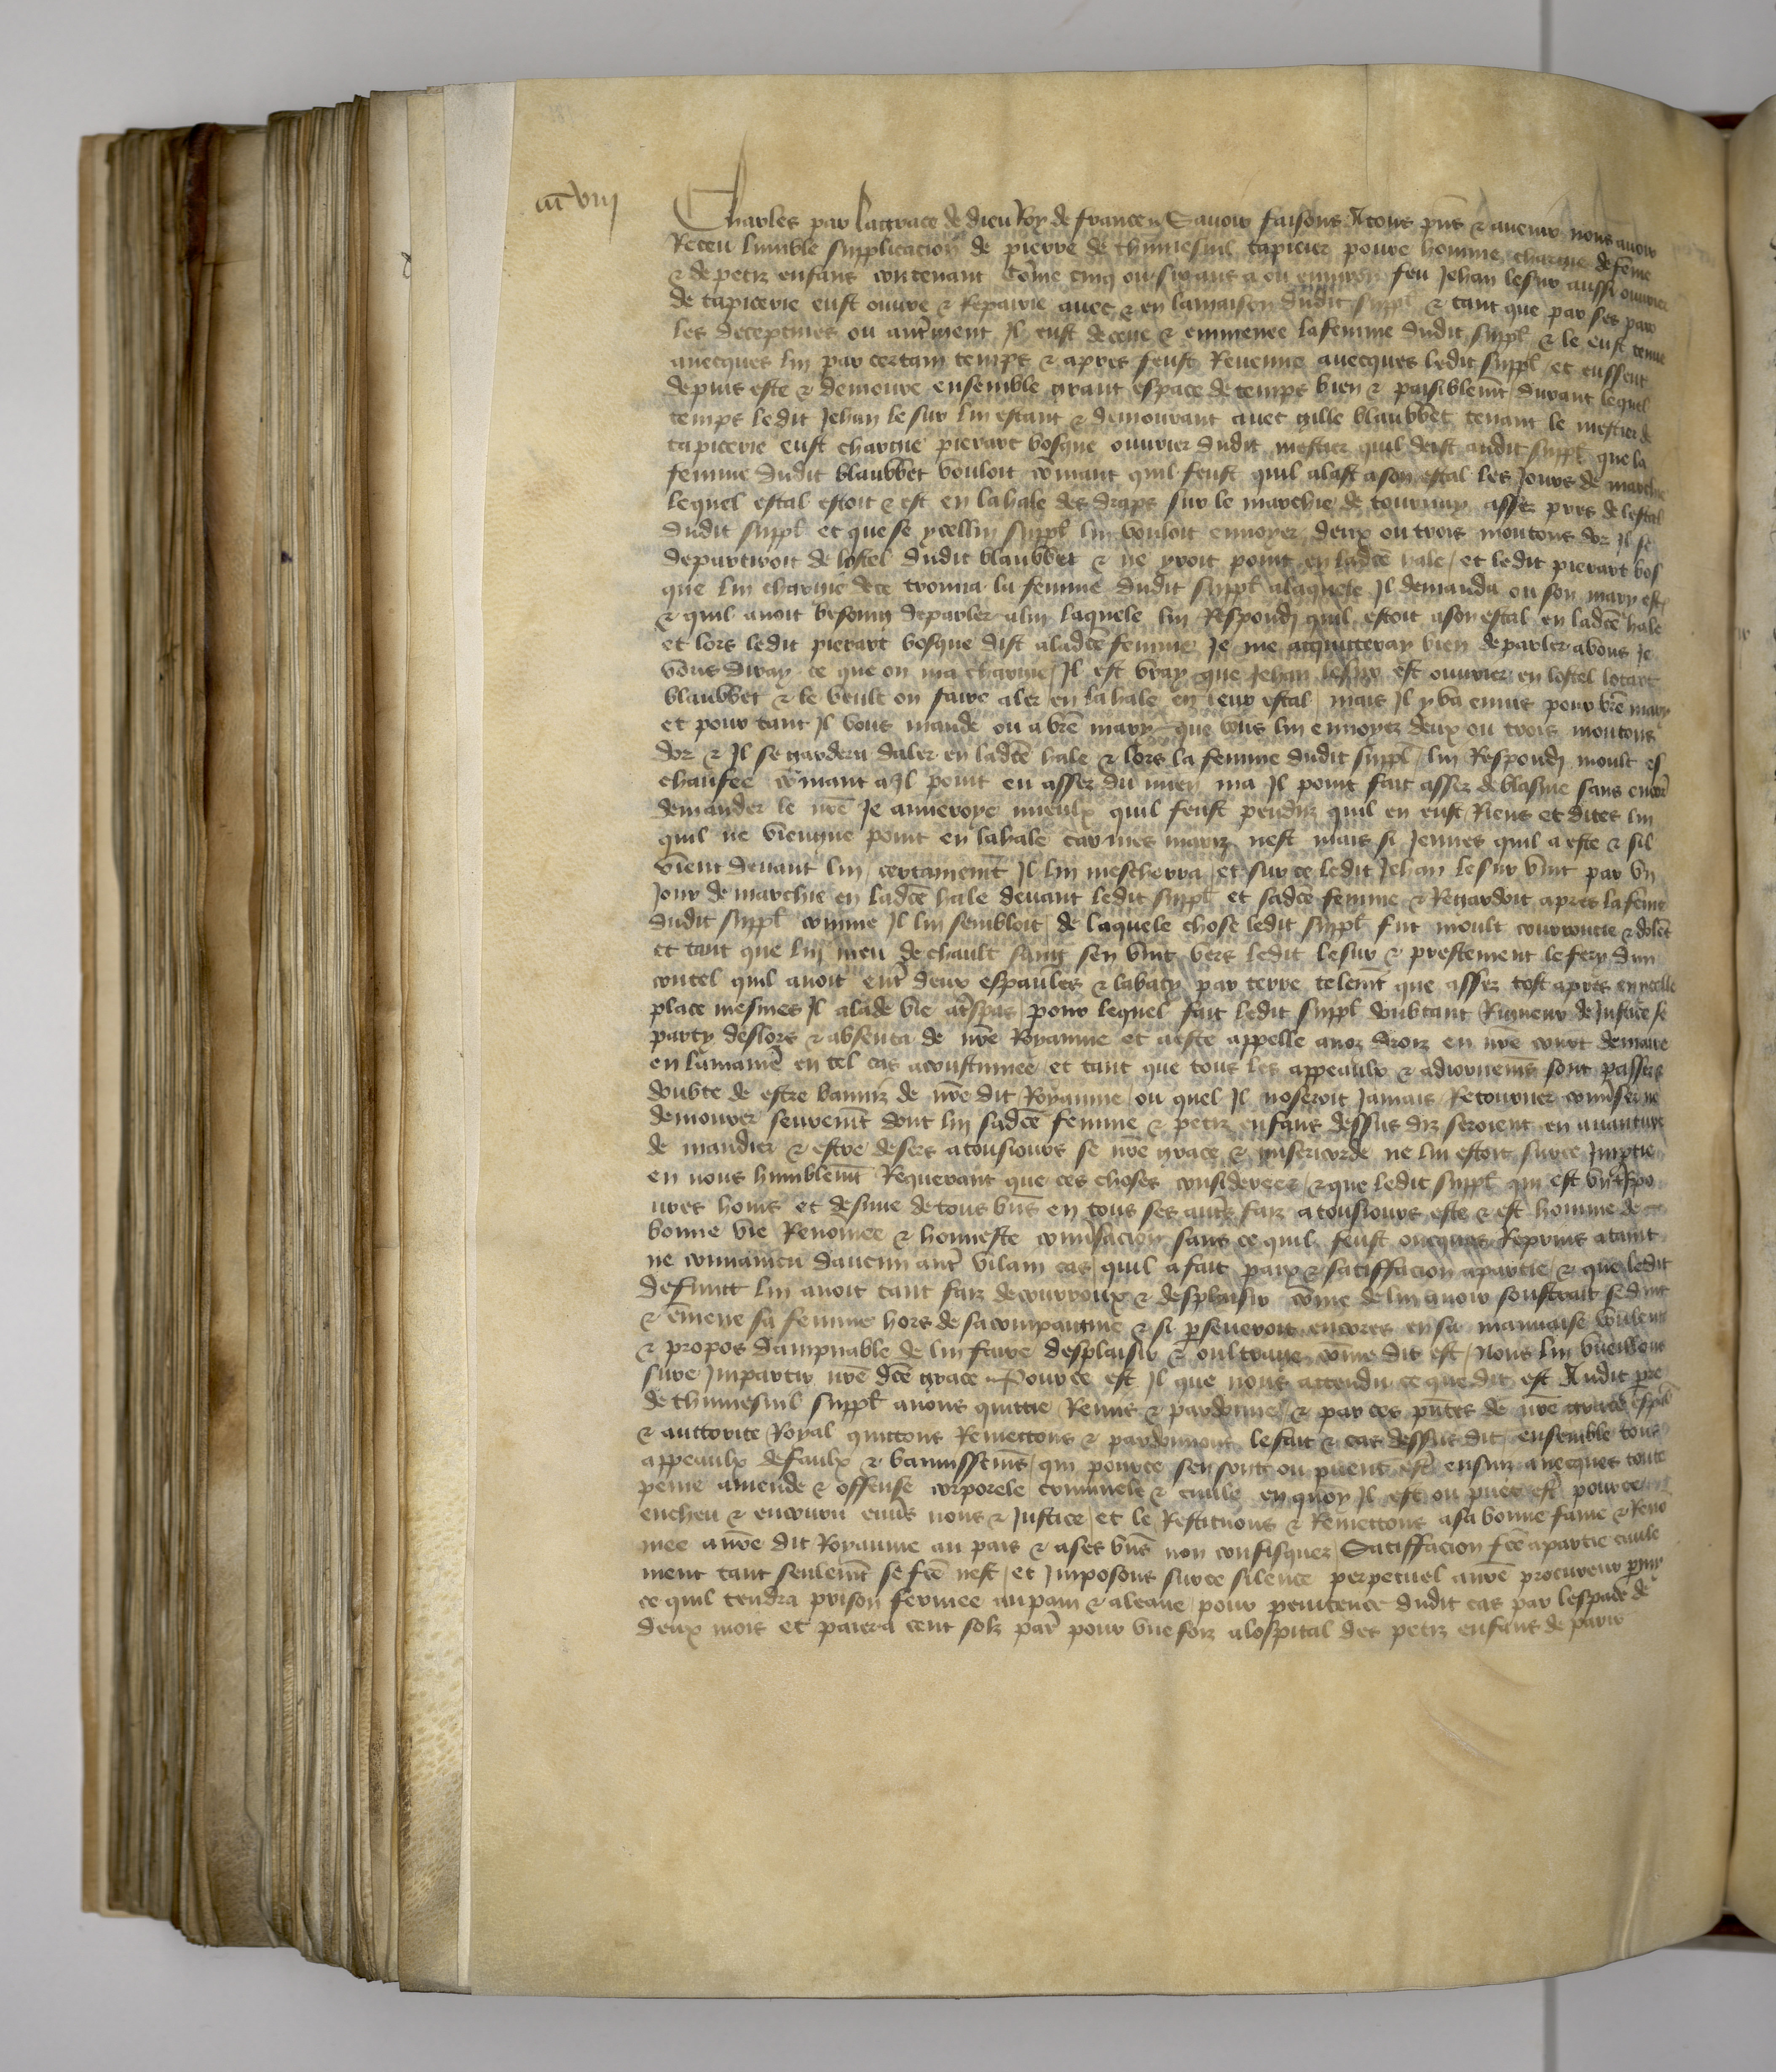 iiii^c viii
Charles par la grace de dieu Roy de france Savoir faisons A tous pñs & avenir nous avoir
Receu lumble supplicacion de pierre de thumesnil tapicier povre homme chargie de feme
& de petiz enfans contenant Cõme cinq ou six ans a ou environ feu Jehan lesur aussi ouvrier
de tapicerie eust ouvre & Repairie avec & en la maison dudit suppl̃ & tant que par ses paro
les deceptives ou autrement Il eust deceue & emmenee la femme dudit suppl̃ & le eust tenue
avecques lui par certain temps & apres feust Revenue avecques ledit suppl̃ et eussent
depuis este & demoure ensemble grant espace de temps bien & paisiblemt̃ durant lequel
temps ledit Jehan le sur lui estant & demourant avec gille blaubbet tenant le mestier de
tapicerie eust chargie pierart bosque ouvrier dudit mestier quil deist audit suppl̃ que la
femme dudit blaubbet vouloit cõmant quil feust quil alast a son estal les Jours de marchie
lequel estal estoit & est en la hale des draps sur le marchie de tournay assez pres de lestal
dudit suppl̃ et que se ycellui suppl̃ lui vouloit envoyer deux ou trois moutons dor Il se
departiroit de lostel dudit blaubbet & ne yroit point en ladc̃e hale / et ledit pierart bos
que lui chargie de ce trouva la femme dudit suppl̃ a laquele Il demanda ou son mary est
& quil avoit besoing de parler a lui laquele lui Respondi quil estoit a son estal en ladc̃e hale
et lors ledit pierart bosque dist a ladc̃e femme Je me acquitteray bien de parler a vous Je
vous diray ce que on ma chargie / Il est vray que Jehan lesur est ouvrier en lostel lotart
blaubbet & le veult on faire aler en la hale en leur estal mais Il y va envis pour vr̃e mary
et pour tant Il vous mande ou a vr̃e mary que vous lui envoyez deux ou trois moutons
dor & Il se gardera daler en ladc̃e hale & lors la femme dudit suppl̃ lui Respondi moult es
chaufee cõmant a Il point eu assez du mien ma Il point fait assez de blasme sans encor̃
demander le nr̃e Je aimeroye mieulx quil feust penduz quil en eust Riens et dites lui
quil ne viengne point en la hale car mes mariz nest mais si Jennes quil a este & sil
vient devant lui certainemt̃ Il lui mescherra / et sur ce ledit Jehan lesur vint par un
Jour de marchie en ladc̃e hale devant ledit suppl̃ et sadc̃e femme & Regardoit apres la feme
dudit suppl̃ comme Il lui sembloit de laquele chose ledit suppl̃ fut moult courroucie & dolẽt
et tant que lui meu de chault sang sen vint vers ledit lesur & prestement le fery dun
coutel quil avoit entr̃ deux espaules & labaty par terre telemt̃ que assez tost apres en ycelle
place mesmes Il ala de vie a tr̃spas / pour lequel fait ledit suppl̃ doubtant Rigueur de Justice se
party deslors & absenta de nr̃e Royaume et a este appelle a noz droiz en nr̃e court de maire
en la maniẽ en tel cas acoustumee et tant que tous les appeaulx & adiornemẽs sont passes
doubte de estre banniz de nr̃e dit Royaume ou quel Il noseroit Jamais Retourner conv̾ser ne
demourer seuremt̃ dont lui sadc̃e femme & petiz enfans dessus diz seroient en avanture
de mandier & estre desers a tousiours se nr̃e grace & misericorde ne lui estoit sur ce Imptie
en nous humblemt̃ Requerant que ces choses considerees / & que ledit suppl̃ qui est un tr̃spo
vres homs et desnue de tous biẽs en tous ses autr̃s faiz a tousiours este & est homme de
bonne vie Renõmee & honneste conv̾sacion sans ce quil feust oncques Repris ataint
ne convaincu daucun autr̃ vilain cas / quil a fait paix & satiffacion a partie & que ledit
defunct lui avoit tant faiz de courroux & desplaisir cõme de lui avoir soustrait seduit
& ẽmene sa femme hors de sa compaignie & si p̃severoit encores en sa mauvaise voulente
& propos dampnable de lui faire desplaisir & oultrage cõme dit est / Nous lui vueillons
sur ce Impartir nr̃e dc̃e grace Pource est Il que nous attendu ce que dit est Audit p̃re
de thumesnil suppl̃ avons quittie Remis & pardonne & par ces p̃ntes de nr̃e grace esp̃al
& auctorite Royal quittons Remettons & pardonnons le fait & cas dessus dit ensemble tous
appeaulx defaulx & bannissemẽs qui pource sen sont ou puent estr̃ ensuiz avecques toute
peine amende & offense corporele criminele & civile en quoy Il est ou puet estr̃ pource
encheu & encouru envers nous & Justice / et le Restituons & Remettons a sa bonne fame & Reno
mee a nr̃e dit Royaume au pais & a ses biẽs non confisquez / Satiffacion fc̃e a partie civile
ment tant seulemt̃ se fc̃e nest / et Imposons sur ce silence perpetuel a nr̃e procureur parmi
ce quil tendra prison fermee au pain & a leaue pour penitence dudit cas par lespace de
deux mois et paiera cent solz par̃ pour une foiz a lospital des petiz enfans de paris